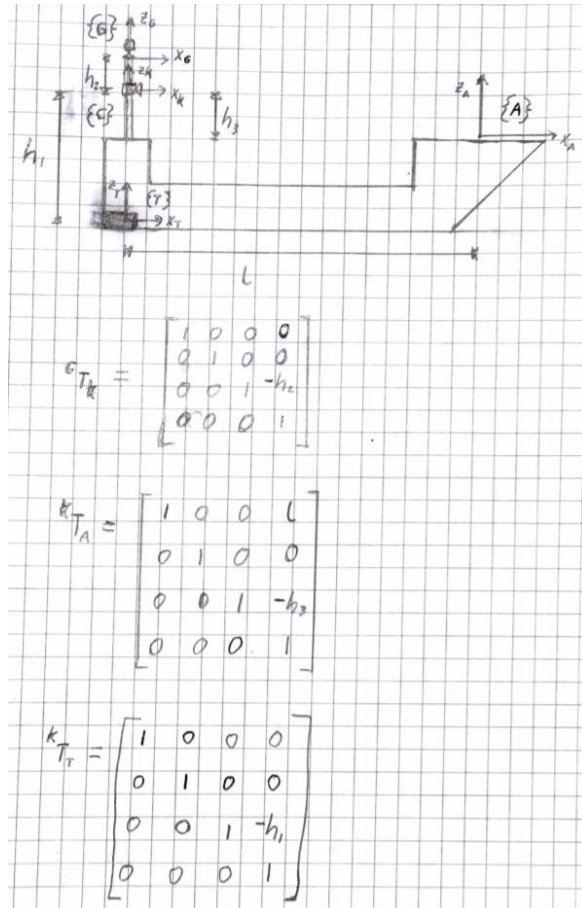 {G} z_G
x_G
h_2 z_K
x_K
{C} h_3
z_A {A}
x_A
h_1
z_T {T}
x_T
L
^G T_K = [ 1 0 0 0
0 1 0 0
0 0 1 -h_2
0 0 0 1 ]
^K T_A = [ 1 0 0 L
0 1 0 0
0 0 1 -h_3
0 0 0 1 ]
^K T_T = [ 1 0 0 0
0 1 0 0
0 0 1 -h_1
0 0 0 1 ]